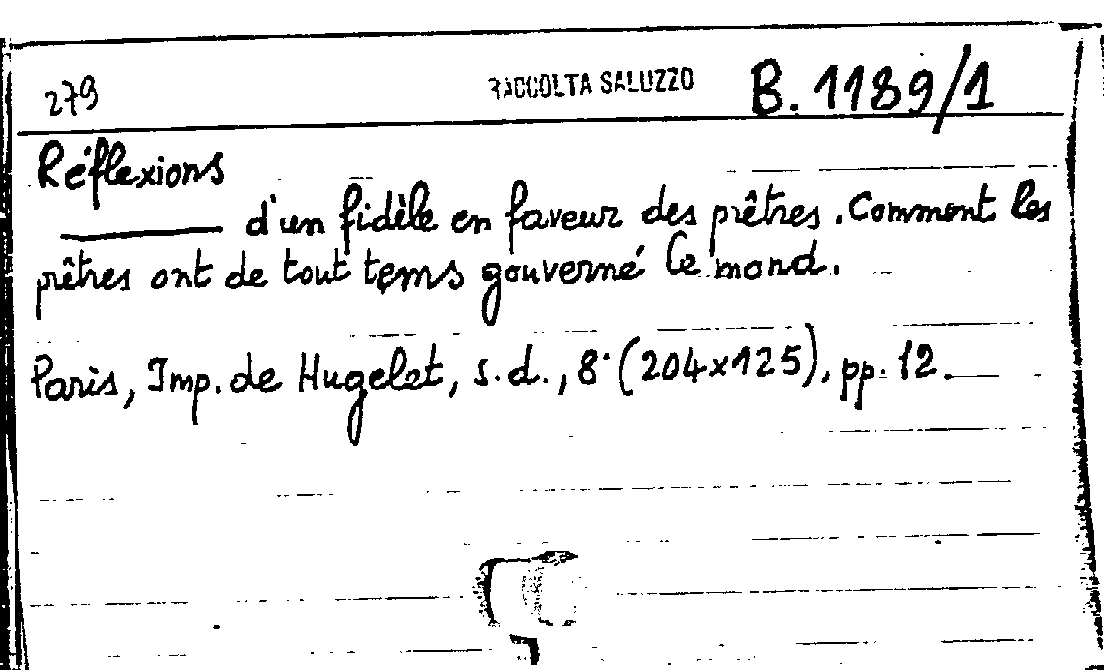 279 RACCOLTA SALUZZO B. 1189/1
Réflexions
d'un fidèle en faveur des prêtres. Comment les
prêtres ont de tout tems gouverné le mond.
Paris, Imp. de Hugelet, s.d., 8° (204x125), pp. 12.